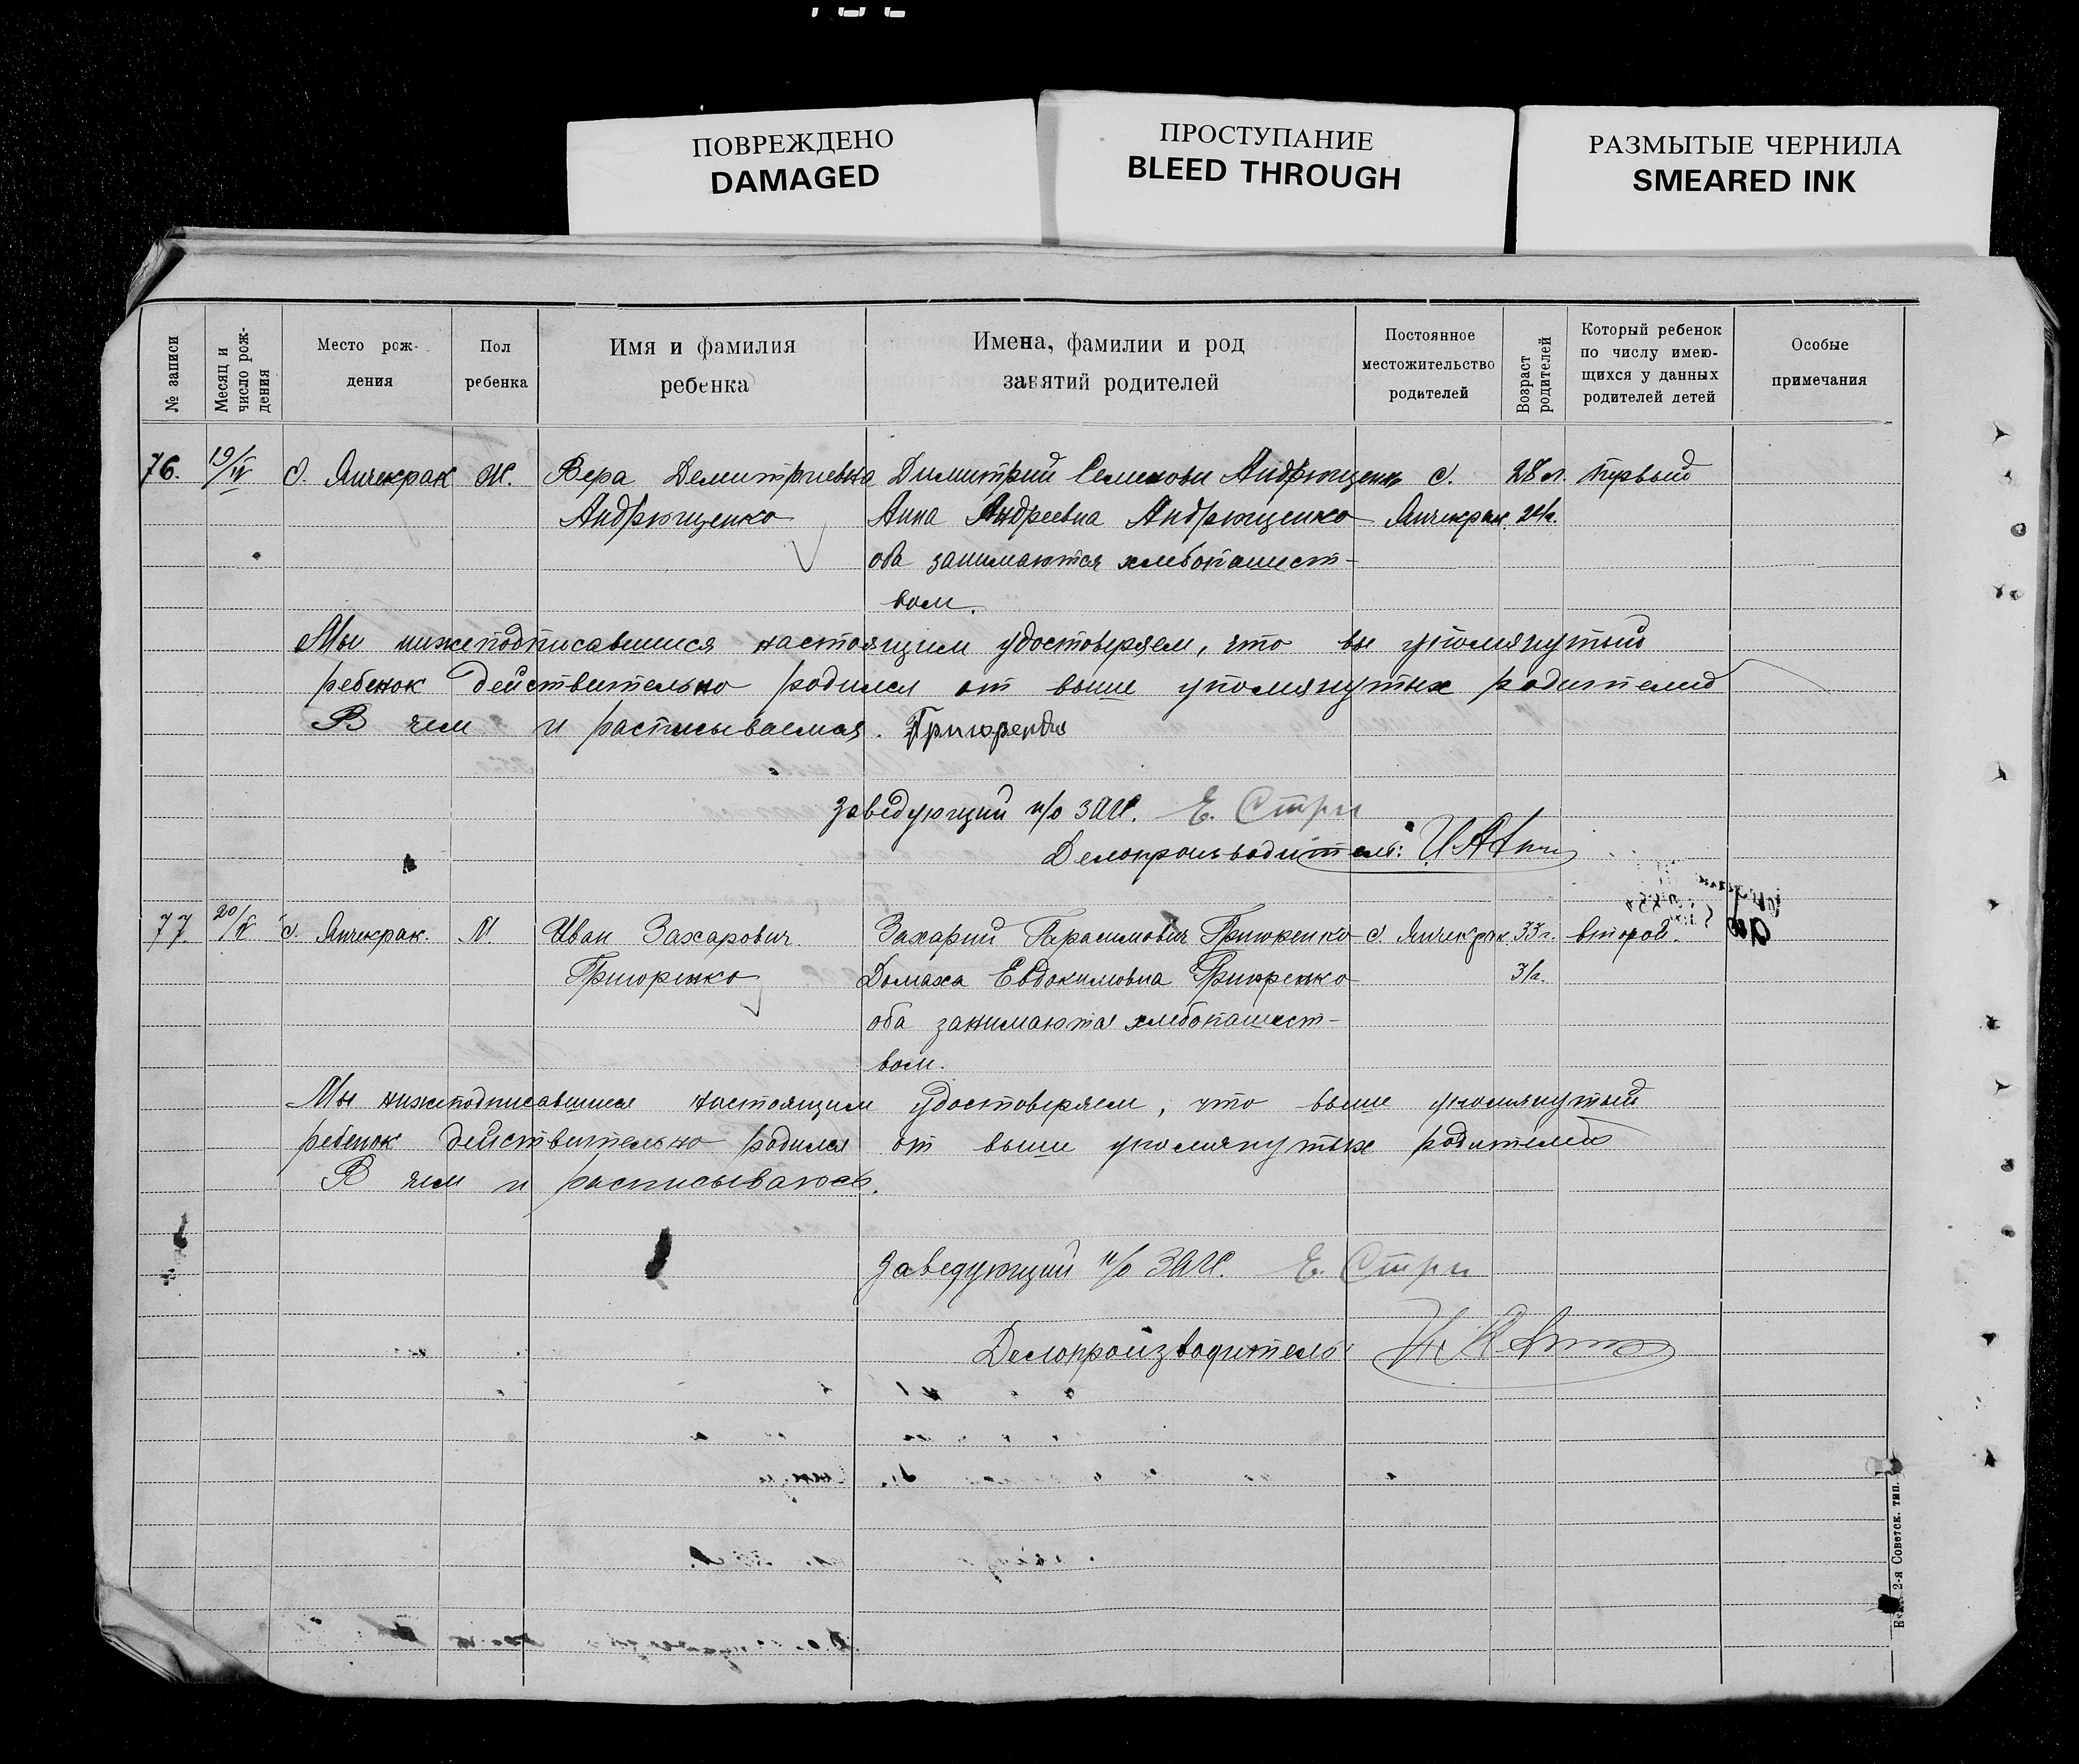 ПОВРЕЖДЕНО
DAMAGED
ПРОСТУПАНИЕ
BLEED THROUGH
РАЗМЫТЫЕ ЧЕРНИЛА
SMEARED INK
№ записи
Месяц и число рож-дения
Место рож-
дения
Пол
ребенка
Имя и фамилия
ребенка
Имена, фамилии и род
занятий родителей
Постоянное
местожительство
родителей
Возраст родителей
Который ребенок
по числу имею-
щихся у данных
родителей детей
Особые
примечания
76. 19/IV с. Янчекрак Ж. Вера Демитриевна Димитрий Семенови Андрющенко с. 28 л. первый
Андрющенко Анна Андреевна Андрющенко Янчекрак 24г.
оба занимаются хлебопашест-
вом.
Мы нижеподписавшиеся настоящим удостоверяем, что вы упомянутый
ребенок действительно родился от выше упомянутых родителей
В чем и расписываемся.
Заведующий п/о ЗАГС. Е. Стри
Делопроизводитель:
77. 20/IV с. Янчекрак. М. Иван Захарович Захарий Герасимович Григоренко с. Янчекрак 33г. второй.
Григоренко Домаха Евдокимовна Григоренко 31г.
оба занимаются хлебопашест-
вом.
Мы нижеподписавшиеся настоящим удостоверяем, что выше упомянутый
ребенок действительно родился от выше упомянутых родителей
В чем и расписываюсь.
Заведующий п/о ЗАГС. Е. Стри
Делопроизводитель:
2-я Советск. тип.